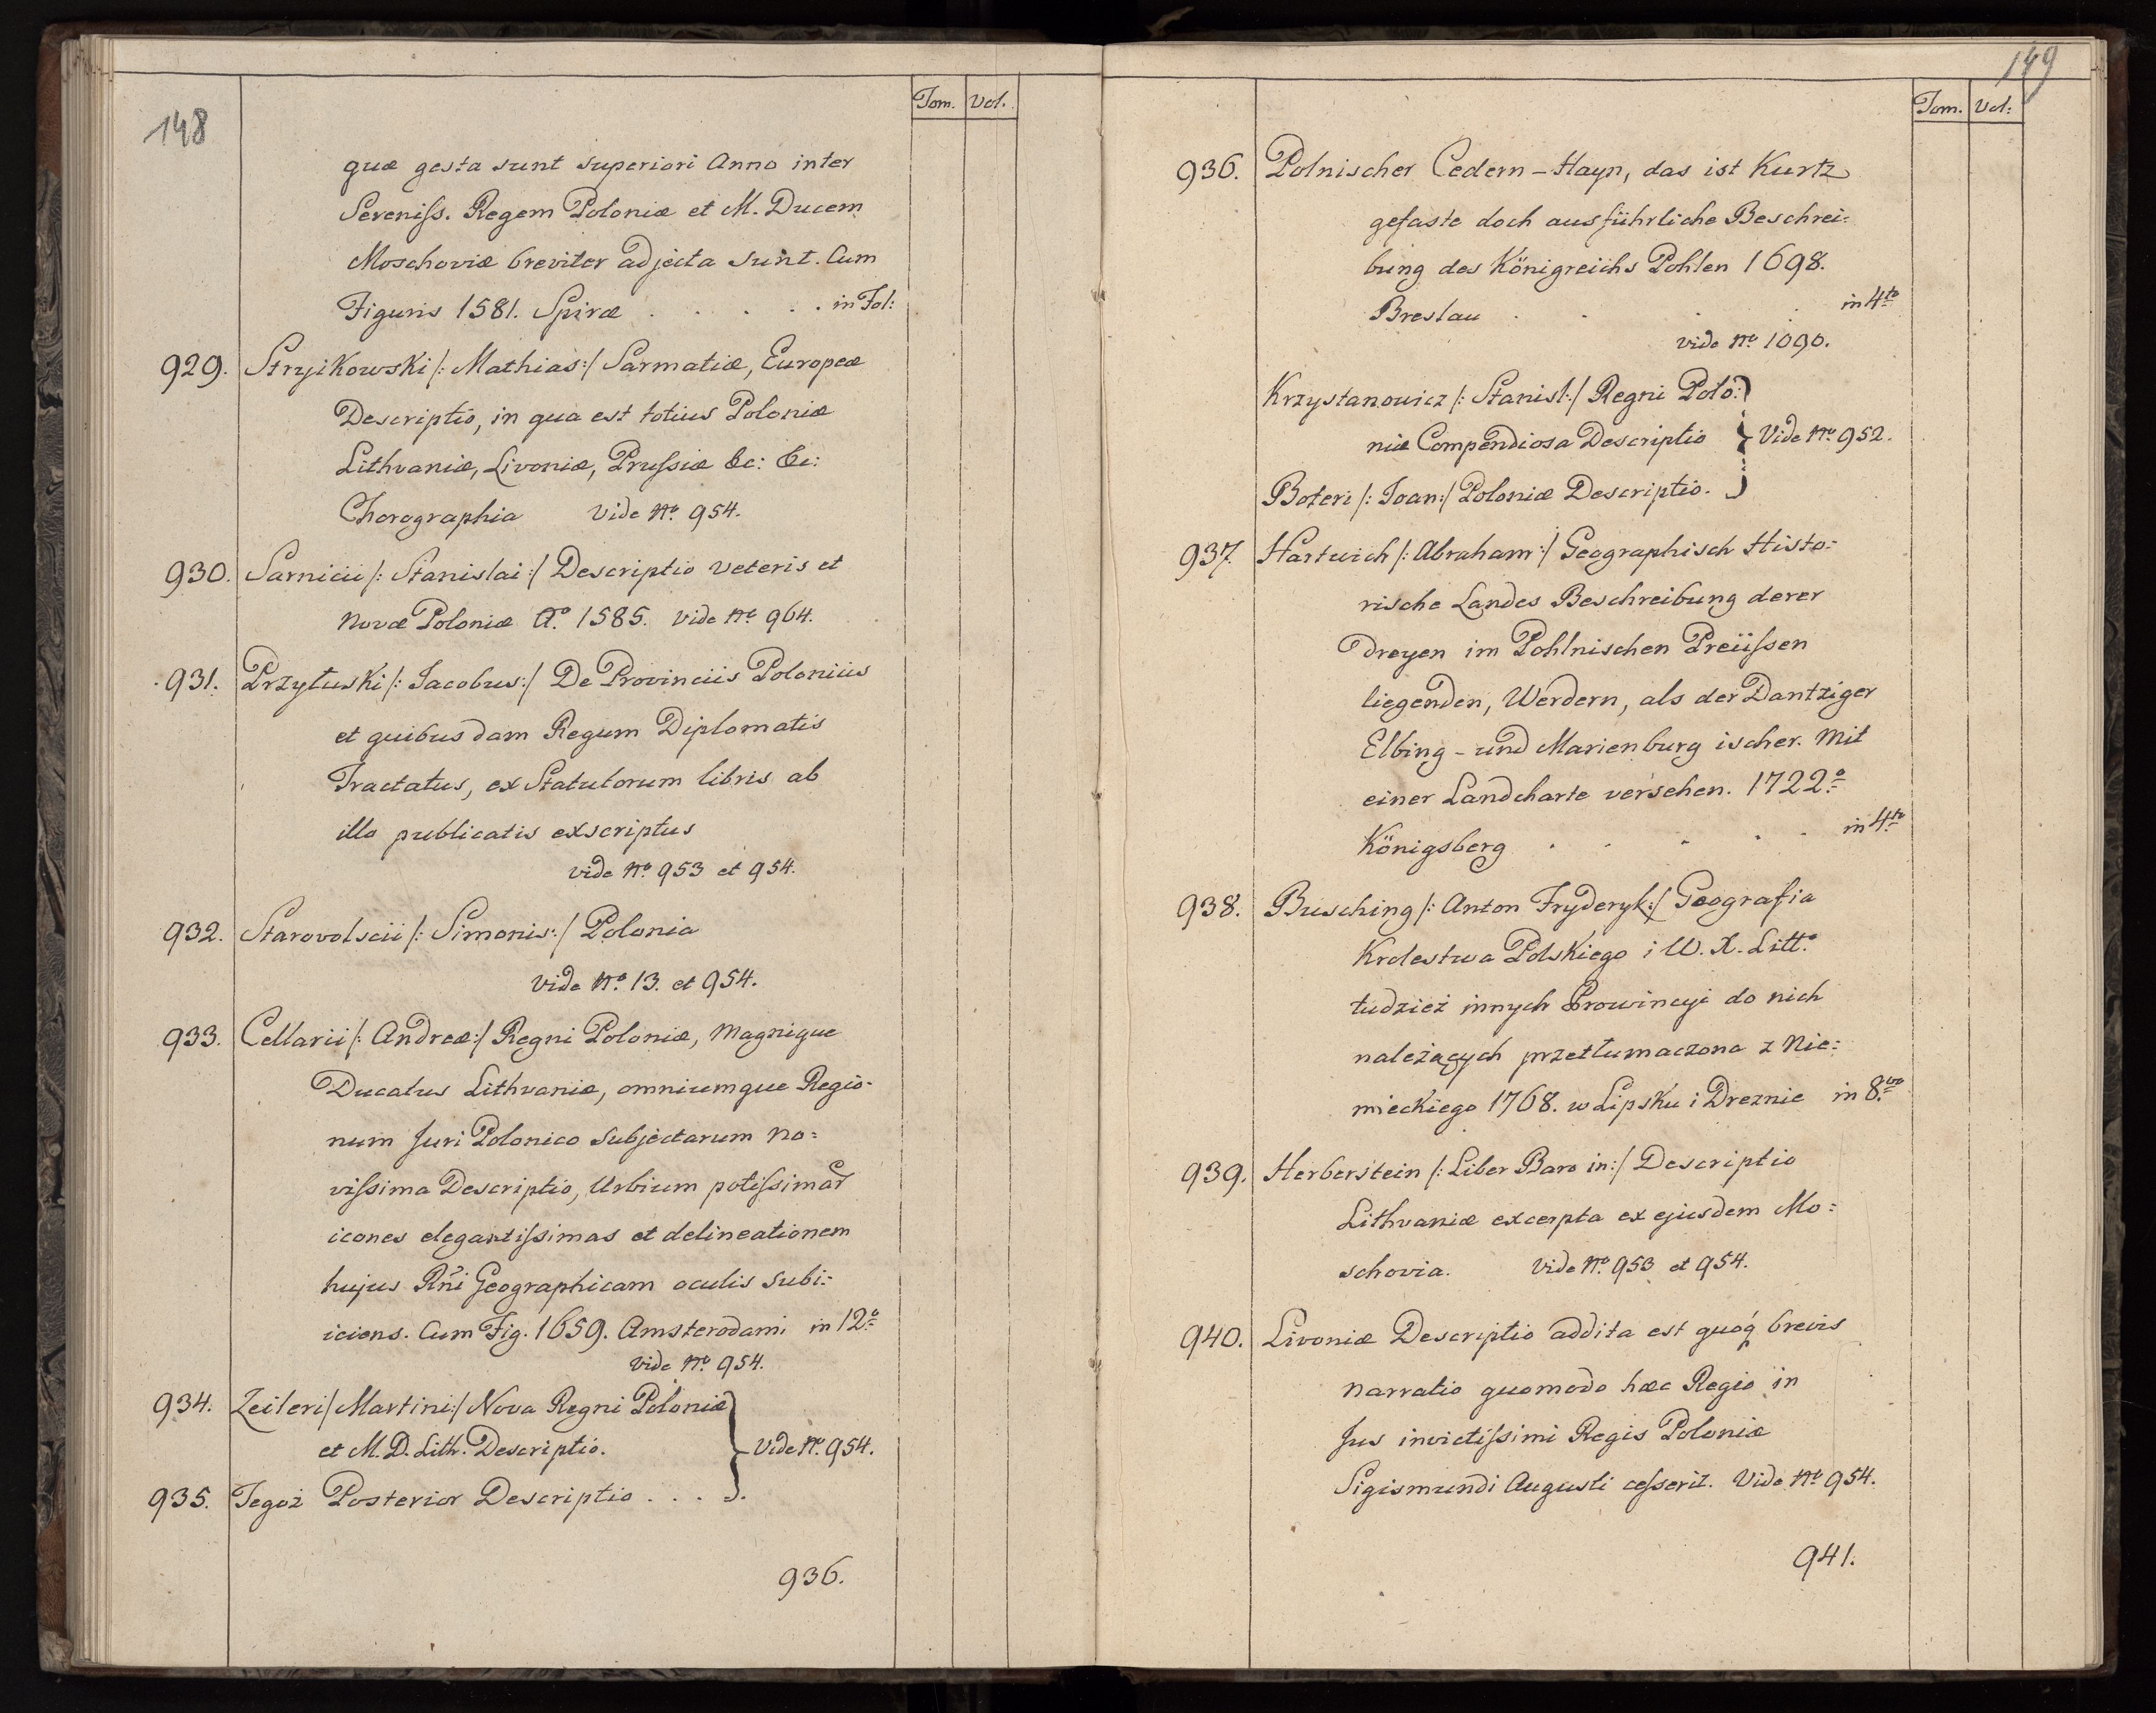 148
Tom. Vol.
quæ gesta sunt superiori Anno inter
Sereniſs. Regem Poloniæ et M. Ducem
Moschoviæ breviter adjecta sunt. Cum
Figuris 1581. Spiræ . . . . . in Fol:
929. Stryikowski /: Mathias :/ Sarmatiæ, Europeæ
Descriptio, in qua est totius Poloniæ
Lithvaniæ, Livoniæ, Pruſsiæ &c: &c:
Chorographia Vide No. 954.
930. Sarnicii /: Stanislai :/ Descriptio veteris et
novæ Poloniæ Ao. 1585. vide No. 964.
931. Przyłuski /: Jacobus :/ De Provinciis Poloniiis
et quibusdam Regum Diplomatis
Tractatus, ex Statutorum libris ab
illo publicatis exscriptus
vide No. 953 et 954.
932. Starovolscii /: Simonis :/ Polonia
vide No. 13. et 954.
933. Cellarii /: Andreæ :/ Regni Poloniæ, Magnique
Ducatus Lithvaniæ, omniumque Regio-
num Juri Polonico Subjectarum no=
viſsima Descriptio, Urbium potiſsimar
icones elegantiſsimas et delineationem
hujus Rñi Geographicam oculis subi=
iciens. Cum Fig. 1659. Amsterodami in 12o.
vide No. 954.
934. Zeileri / Martini :/ Nova Regni Poloniæ
et M. D. Lith. Descriptio. } Vide No. 954.
935. Tegoż Posterior Descriptio . . .
936.
149
Tom. Vol:
936. Polnischer Cedern-Hayn, das ist Kurtz
gefaste doch ausführliche Beschrei=
bung des Königreichs Pohlen 1698.
Breslau . . . . in 4to
vide No. 1090.
Krzystanowicz /: Stanisl :/ Regni Polo=
niæ Compendiosa Descriptio } Vide No. 952.
Boteri /: Joan :/ Poloniæ Descriptio.
937. Hartwich /: Abraham :/ Geographisch Histo=
rische Landes Beschreibung derer
Dreyen im Pohlnischen Preüſsen
liegenden, Werdern, als der Dantziger
Elbing- und Marienburg ischer. Mit
einer Landcharte versehen. 1722o.
Königsberg . . . . . in 4to
938. Busching /: Anton Fryderyk :/ Geografia
Krolestwa Polskiego i W. X. Litt.o
tudzież innych Prowincyi do nich
należących przetłumaczona z Nie=
mieckiego 1768. w Lipsku i Dreznie in 8vo
939. Herberstein /: Liber Baro in :/ Descriptio
Lithvaniæ excerpta ex ejusdem Mo=
schovia. Vide No. 953 et 954.
940. Livoniæ Descriptio addita est quoq́ brevis
narratio quomodo hæc Regio in
Jus invictiſsimi Regis Poloniæ
Sigismundi Augusti ceſserit. Vide No. 954.
941.